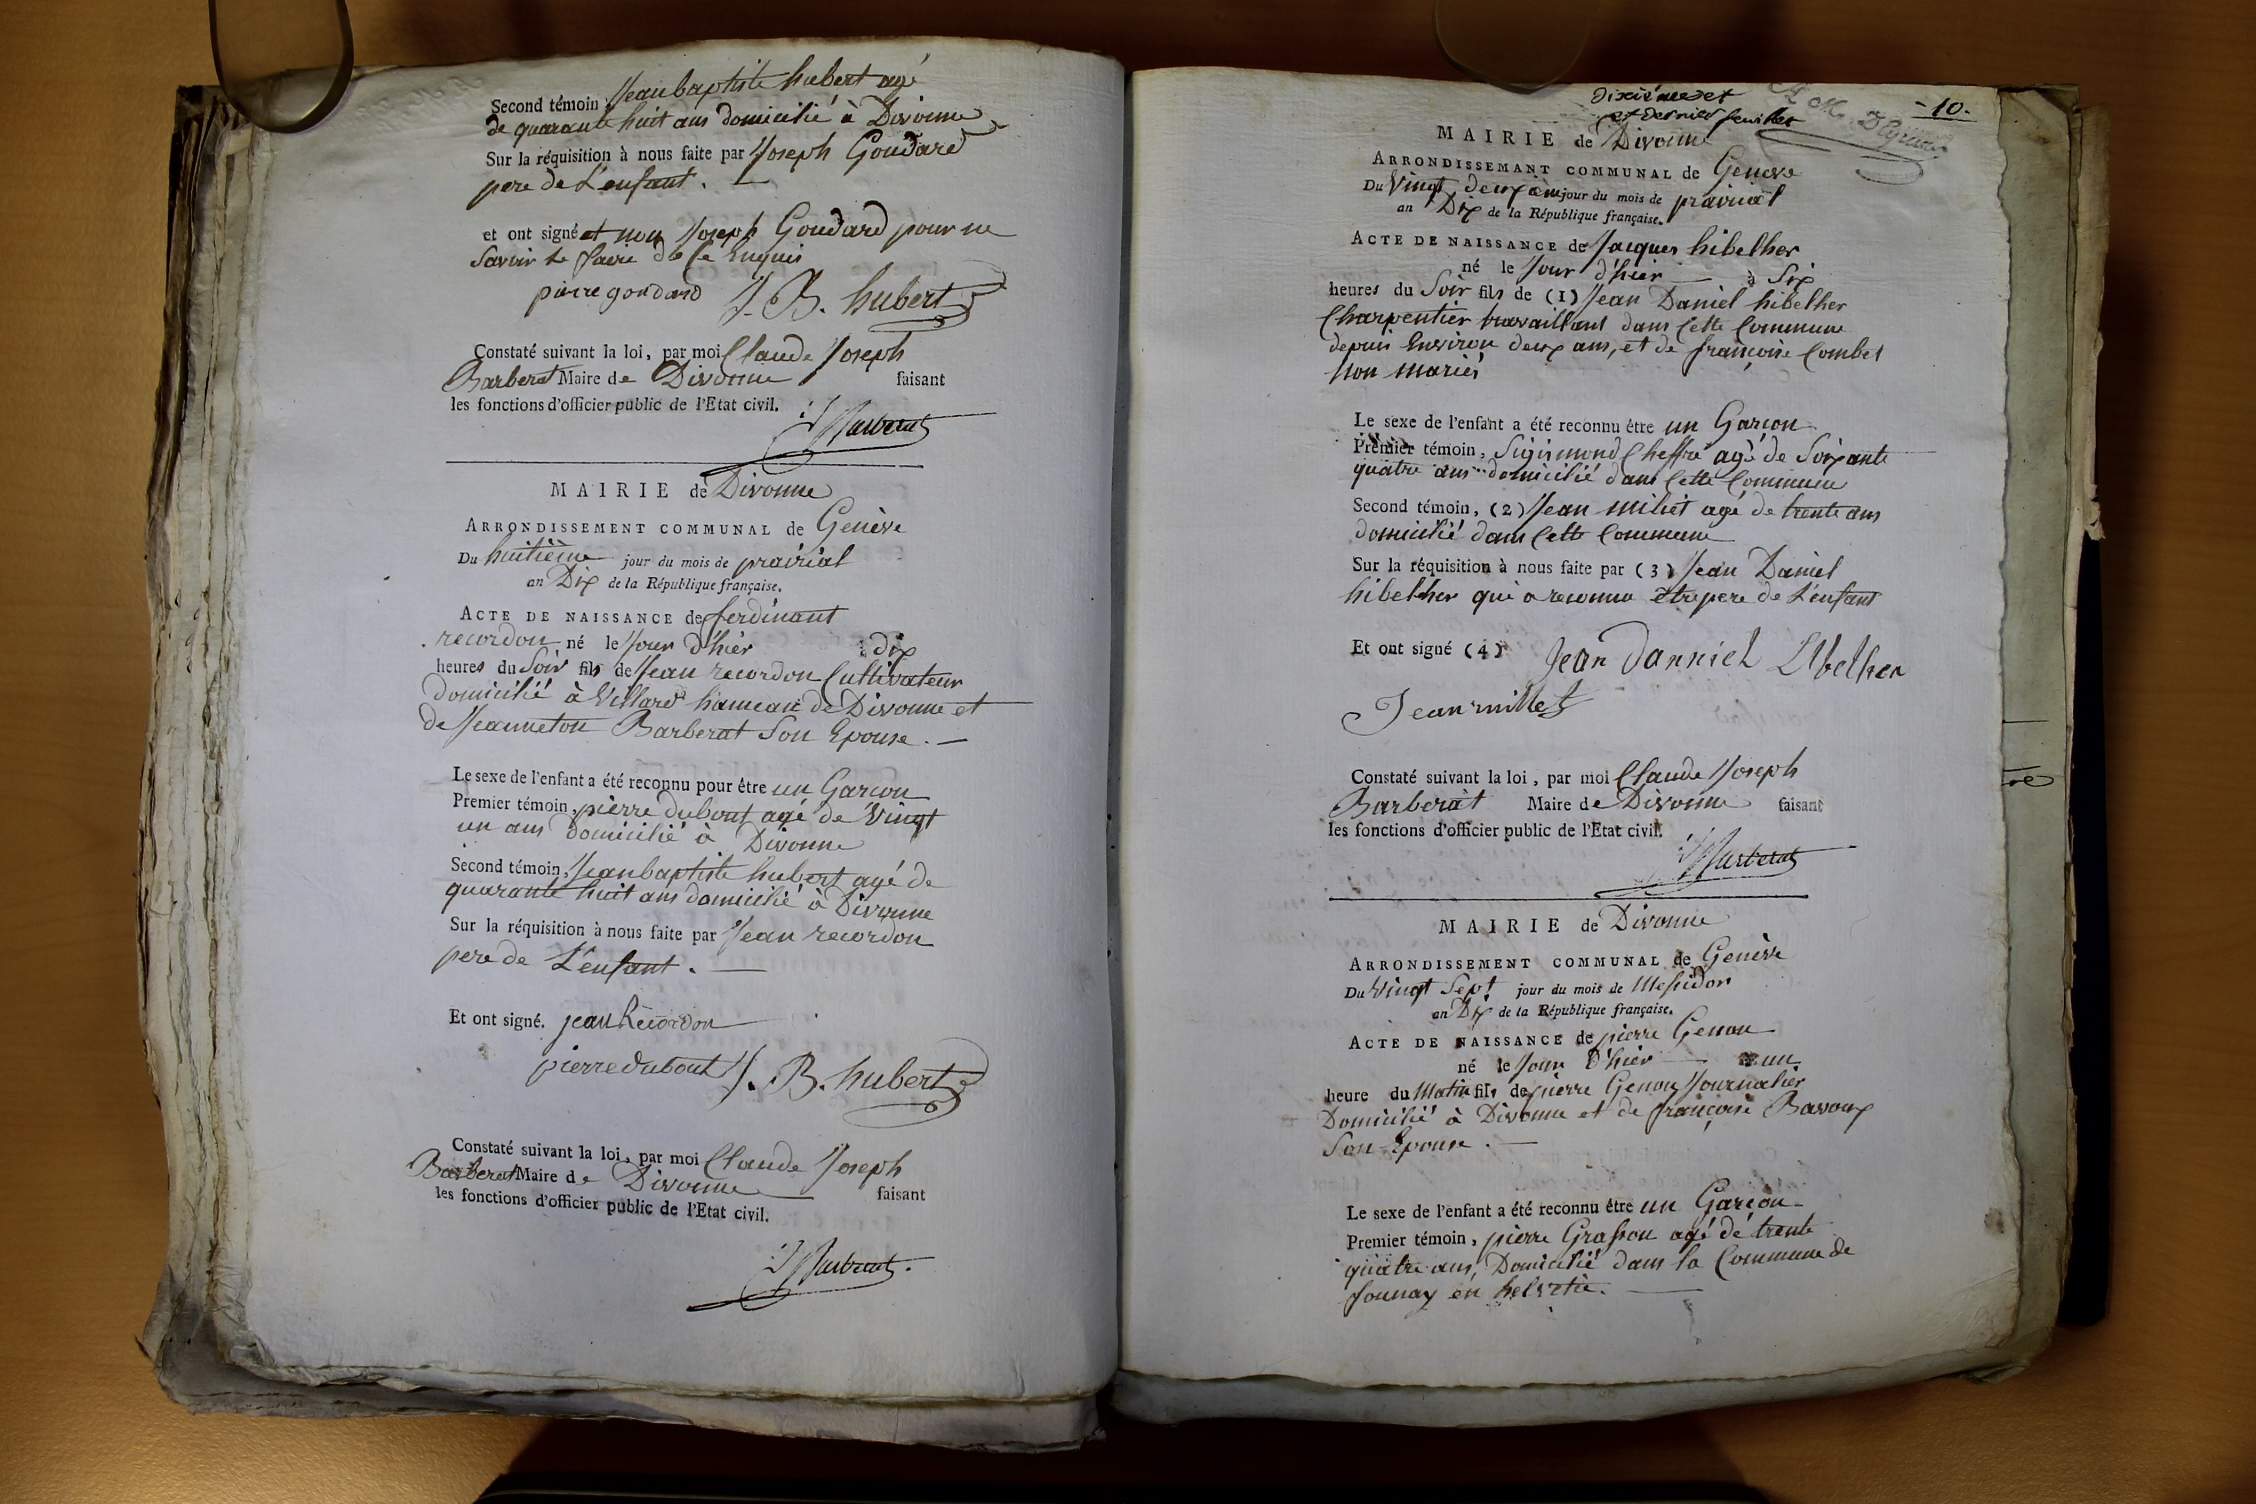 Second témoin, Jean baptiste hubert agé
de quarante huit ans domicilié à Divonne
Sur la réquisition à nous faite par Joseph Goudard
pere de L'enfant.
et ont signé et non Joseph Goudard pour ne
Savoir le faire de ce Enquis
pierre goudard J. B. hubert
Constaté suivant la loi, par moi Claude Joseph
Barberat Maire de Divonne faisant
les fonctions d'officier public de l'Etat civil.
Barberat
MAIRIE de Divonne
ARRONDISSEMENT COMMUNAL de Genève
Du huitième jour du mois de prairial
an Dix de la République française.
ACTE DE NAISSANCE de ferdinant
recordon né le Jour d'hier à dix
heures du Soir fils de Jean recordon Cultivateur
domicilié à Villard hameau de Divonne et
de Jeanneton Barberat Son Epouse.
Le sexe de l'enfant a été reconnu pour être un Garcon
Premier témoin, pierre dubout agé de Vingt
un ans domicilié à Divonne
Second témoin, Jean baptiste hubert agé de
quarante huit ans domicilié à Divonne
Sur la réquisition à nous faite par Jean recordon
pere de L'enfant.
Et ont signé. jean Recordon
pierre dubout J. B. hubert
Constaté suivant la loi, par moi Claude Joseph
Barberat Maire de Divonne faisant
les fonctions d'officier public de l'Etat civil.
Barberat
dixième et
et dernier feuillet
-10-
MAIRIE de Divonne
ARRONDISSEMANT COMMUNAL de Geneve
Du Vingt deuxièm jour du mois de prairial
an Dix de la République française.
ACTE DE NAISSANCE de Jacques hibelher
né le Jour d'hier à Six
heures du Soir fils de (1) Jean Daniel hibelher
Charpentier travaillant dans Cette Commune
depuis Environ deux ans, et de françoise Combet
Non mariés
Le sexe de l'enfant a été reconnu être un Garcon
Premier témoin, Sigismond Cheffre agé de Soixante
quatre ans domicilié dans Cette Commune
Second témoin, (2) Jean miliet agé de trente ans
domicilié dans Cette Commune
Sur la réquisition à nous faite par (3) Jean Daniel
hibelher qui a reconnu etre pere de L'enfant
Et ont signé (4) Jean danniel
Jean millet
Constaté suivant la loi, par moi Claude Joseph
Barberat Maire de Divonne faisant
les fonctions d'officier public de l'Etat civil.
Barberat
MAIRIE de Divonne
ARRONDISSEMENT COMMUNAL de Genève
Du Vingt Sept jour du mois de Messidor
an Dix de la République française.
ACTE DE NAISSANCE de pierre Genou
né le Jour d'hier à un
heure du Matin fils de pierre Genou Journalier
Domicilié à Divonne et de françoise Bavoux
Son Epouse.
Le sexe de l'enfant a été reconnu être un Garçon
Premier témoin, pierre Grasson agé de trente
quatre ans, Domicilié dans la Commune de
founay en helvetie.